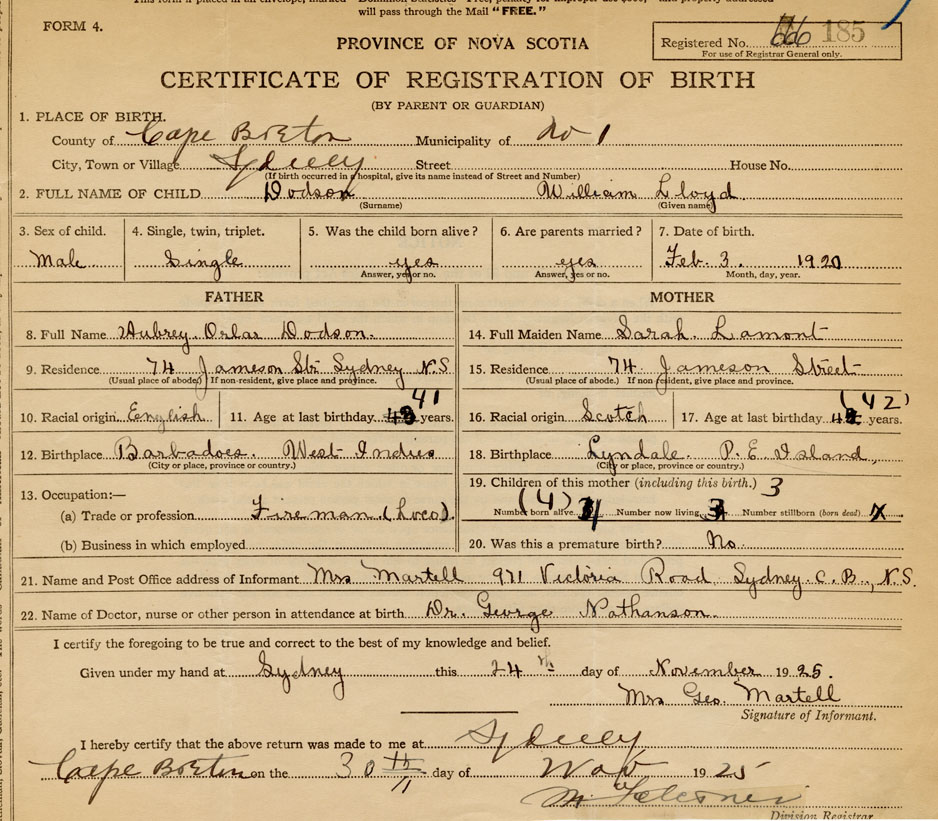 will pass through the Mail "FREE."
FORM 4.
PROVINCE OF NOVA SCOTIA
Registered No. 185
For use of Registrar General only.
CERTIFICATE OF REGISTRATION OF BIRTH
(BY PARENT OR GUARDIAN)
1. PLACE OF BIRTH.
County of Cape Breton Municipality of No 1
City, Town or Village Sydney Street House No.
(If birth occurred in a hospital, give its name instead of Street and Number)
2. FULL NAME OF CHILD Dodson William Lloyd
(Surname) (Given name)
3. Sex of child. 4. Single, twin, triplet. 5. Was the child born alive? 6. Are parents married? 7. Date of birth.
Male Single yes yes Feb. 3. 1920
Answer, yes or no. Answer, yes or no. Month, day, year.
FATHER MOTHER
8. Full Name Aubrey Orlar Dodson. 14. Full Maiden Name Sarah Lamont
9. Residence 74 Jameson Str. Sydney N.S 15. Residence 74 Jameson Street
(Usual place of abode) If non-resident, give place and province. (Usual place of abode.) If non resident, give place and province.
41 (42)
10. Racial origin English 11. Age at last birthday years. 16. Racial origin Scotch 17. Age at last birthday years.
12. Birthplace Barbadoes. West Indies 18. Birthplace Lyndale. P. E. Island,
(City or place, province or country.) (City or place, province or country.)
13. Occupation:— 19. Children of this mother (including this birth.) 3
(4)
(a) Trade or profession Fireman (Loco). Number born alive Number now living Number stillborn (born dead)
(b) Business in which employed 20. Was this a premature birth? No.
21. Name and Post Office address of Informant Mrs Martell 971 Victoria Road, Sydney. C. B., N.S.
22. Name of Doctor, nurse or other person in attendance at birth Dr. George Nathanson.
I certify the foregoing to be true and correct to the best of my knowledge and belief.
Given under my hand at Sydney this 24th day of November 1925.
Mrs Geo. Martell
Signature of Informant.
I hereby certify that the above return was made to me at Sydney
Cape Breton on the 30th 11 day of Nov 1925
Division Registrar